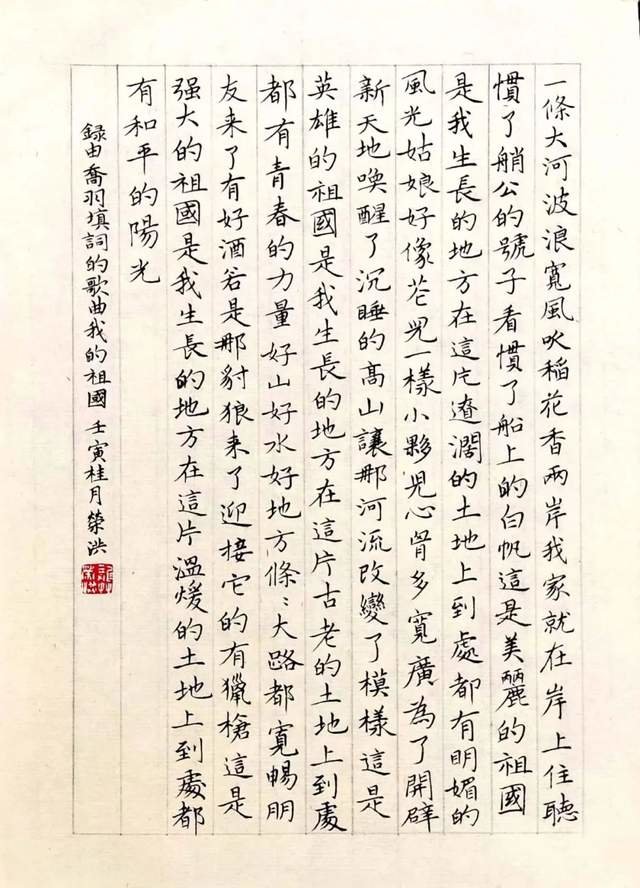 一條大河波浪寬風吹稻花香兩岸我家就在岸上住聽
慣了艄公的號子看慣了船上的白帆這是美麗的祖國
是我生長的地方在這片遼濶的土地上到處都有明媚的
風光姑娘好像花兒一樣小夥兒心胷多寬廣為了開辟
新天地喚醒了沉睡的高山讓那河流改變了模樣這是
英雄的祖國是我生長的地方在這片古老的土地上到處
都有青春的力量好山好水好地方條〻大路都寬暢朋
友来了有好酒若是那豺狼来了迎接它的有獵槍這是
强大的祖國是我生長的地方在這片溫煖的土地上到處都
有和平的陽光
録由喬羽填詞的歌曲我的祖國 壬寅桂月榮洪